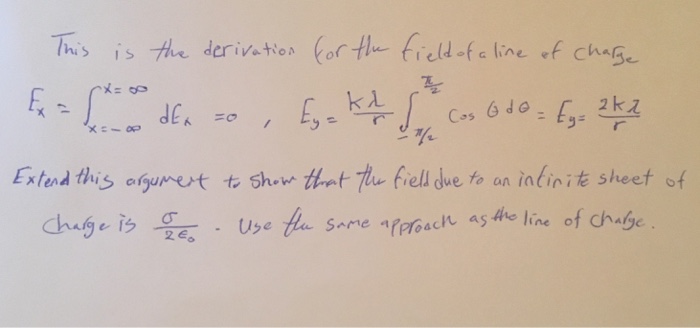 This is the derivation for the field of a line of charge
Ex = ∫_{x=-∞}^{x=∞} dEx = 0 , Ey = kλ/r ∫_{-π/2}^{π/2} cos θ dθ = Ey = 2kλ/r
Extend this argument to show that the field due to an infinite sheet of
charge is σ/2ε₀ . Use the same approach as the line of charge.